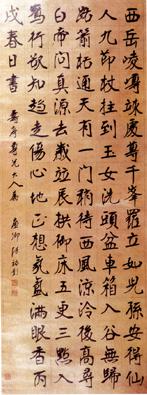 西岳崚嶒竦處尊千峯羅立如兒孫安得仙
人九節杖柱到玉女洗頭盆車箱入谷無歸
路箭栝通天有一門稍待西風涼冷後高尋
白帝問真源去歲茲辰捧御床五更三點入
鵷行欲知趨走傷心地正想氤氳滿眼香丙
戌春日書